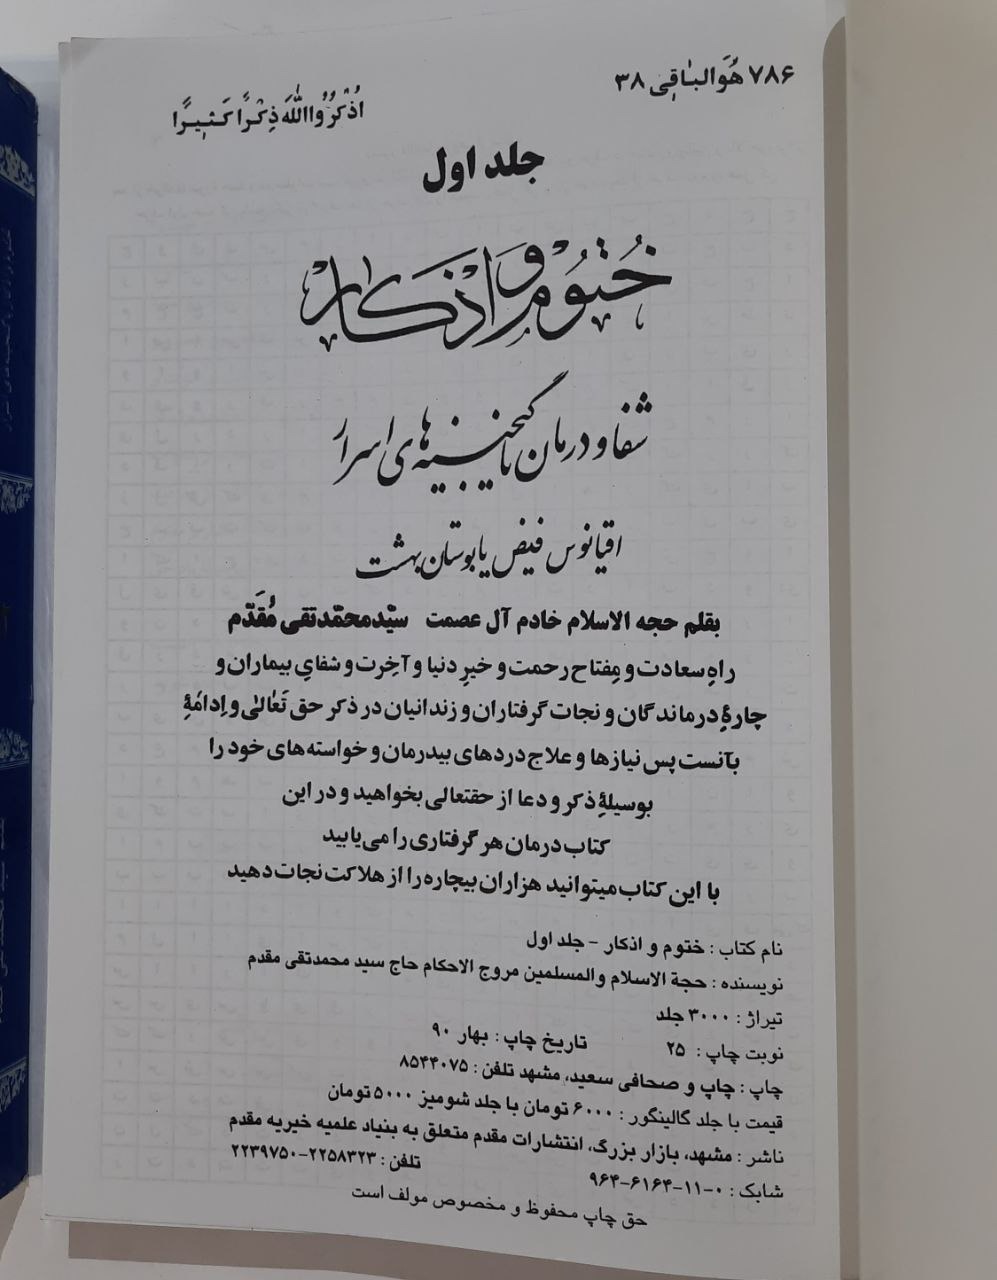 ۷۸۶ هُوَ الباقِی ۳۸
اُذْکُرُوا اللّٰهَ ذِکْراً کَثیراً
جلد اول
خُتُوم و اذکار
شفا و درمان یا گنجینه‌های اسرار
اقیانوس فیض یا بوستان بهشت
بقلم حجه الاسلام خادم آل عصمت سیّد محمّدتقی مُقَدّم
راهِ سعادت و مِفتاح رحمت و خیرِ دنیا و آخِرت و شفایِ بیماران و
چارۀ درماندگان و نجات گرفتاران و زندانیان در ذکر حق تَعٰالیٰ و اِدامۀِ
بآنست پس نیازها و علاج دردهای بیدرمان و خواسته‌های خود را
بوسیلۀِ ذکر و دعا از حقتعالی بخواهید و در این
کتاب درمان هر گرفتاری را می‌یابید
با این کتاب میتوانید هزاران بیچاره را از هلاکت نجات دهید
نام کتاب : ختوم و اذکار - جلد اول
نویسنده : حجة الاسلام والمسلمین مروج الاحکام حاج سید محمدتقی مقدم
تیراژ : ۳۰۰۰ جلد
نوبت چاپ : ۲۵ تاریخ چاپ : بهار ۹۰
چاپ : چاپ و صحافی سعید، مشهد تلفن : ۸۵۴۴۰۷۵
قیمت با جلد گالینگور : ۶۰۰۰ تومان با جلد شومیز ۵۰۰۰ تومان
ناشر : مشهد، بازار بزرگ، انتشارات مقدم متعلق به بنیاد علمیه خیریه مقدم
تلفن : ۲۲۵۸۳۲۳-۲۲۳۹۷۵۰
شابک : ۰-۱۱-۶۱۶۴-۹۶۴
حق چاپ محفوظ و مخصوص مولف است